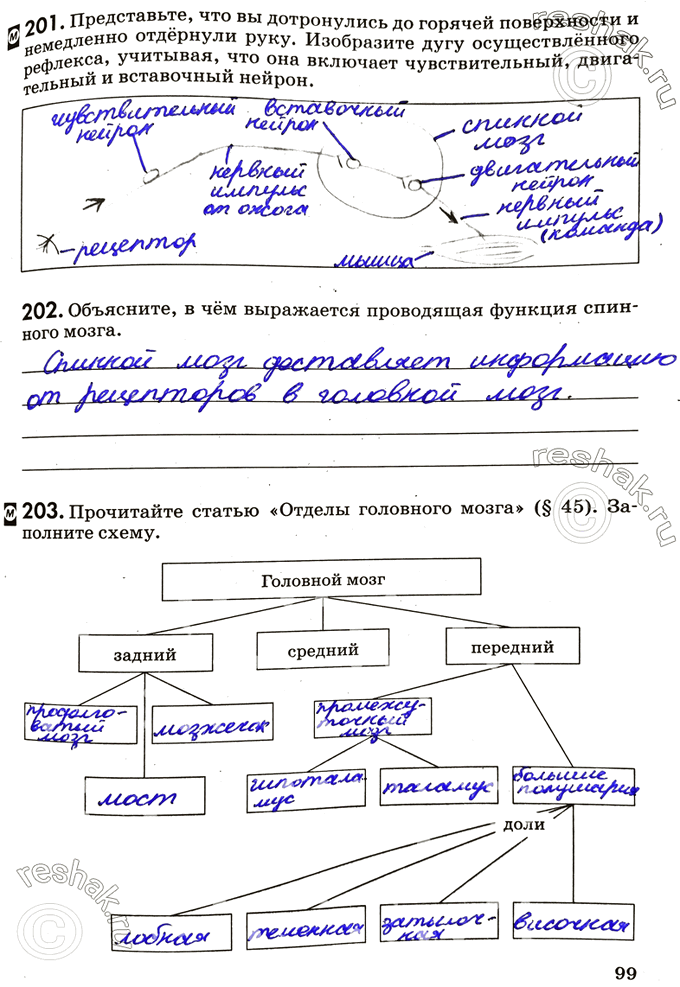 201. Представьте, что вы дотронулись до горячей поверхности и
немедленно отдёрнули руку. Изобразите дугу осуществлённого
рефлекса, учитывая, что она включает чувствительный, двига-
тельный и вставочный нейрон.
чувствительный
нейрон
вставочный
нейрон
спинной
мозг
нервный
импульс
от ожога
двигательный
нейрон
нервный
импульс
(команда)
рецептор
мышца
202. Объясните, в чём выражается проводящая функция спин-
ного мозга.
Спинной мозг доставляет информацию
от рецепторов в головной мозг.
203. Прочитайте статью «Отделы головного мозга» (§ 45). За-
полните схему.
Головной мозг
задний
средний
передний
продолго-
ватый
мозг
мозжечок
промежу-
точный
мозг
мост
гипотала
мус
таламус
большие
полушария
доли
лобная
теменная
затылоч-
ная
височная
99
reshak.ru
reshak.ru
reshak.ru
reshak.ru